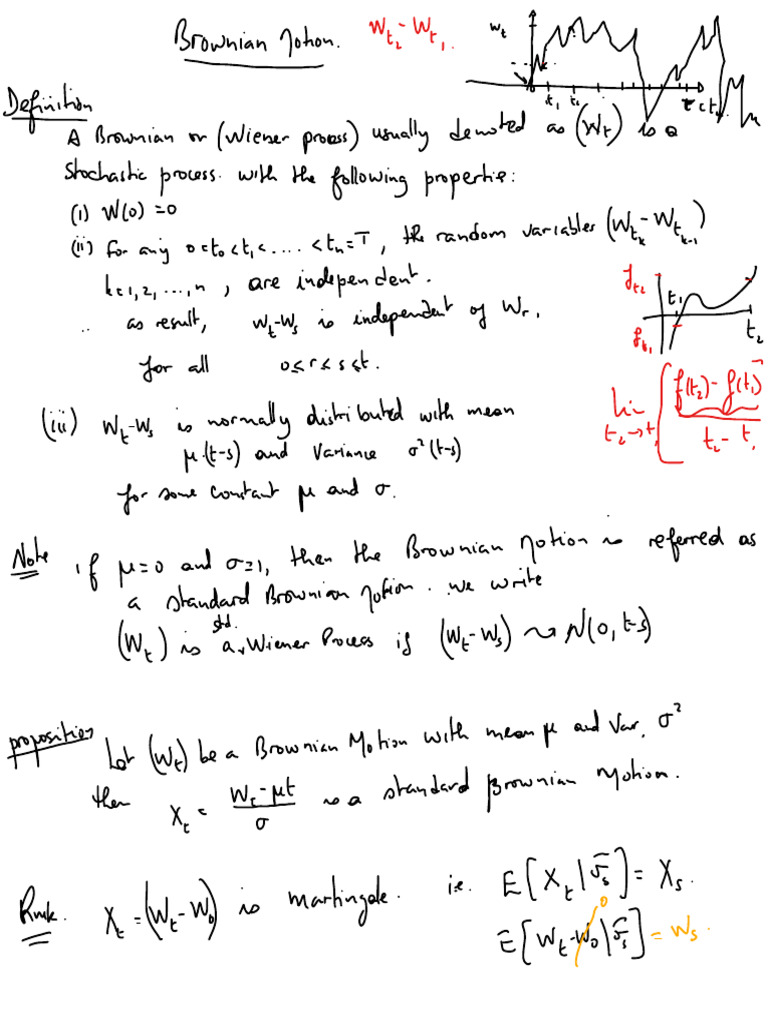 Brownian Motion. W_{t_2} - W_{t_1}.
W_t
t_1 t_2
Definition
A Brownian or (Wiener process) usually denoted as (W_t) is a
Stochastic process. with the following propertie:
(i) W(0) = 0
(ii) For any 0=t_0<t_1<....<t_n=T, the random variables (W_{t_k} - W_{t_{k-1}})
k=1,2,...,n, are independent.
as result, W_t-W_s is independent of W_r,
for all 0≤r≤s≤t.
f_{t_2}
t_1
f_{t_1}
t_2
(iii) W_t-W_s is normally distributed with mean
μ(t-s) and Variance σ²(t-s)
for some constant μ and σ.
lim t_2→t_1 f(t_2) - f(t_1) / t_2 - t_1
Note if μ=0 and σ=1, then the Brownian Motion is referred as
a standard Brownian Motion. we write
(W_t) is a std. Wiener Process if (W_t-W_s) ⤳ N(0, t-s)
proposition Let (W_t) be a Brownian Motion with mean μ and Var. σ²
then X_t = W_t - μt / σ is a standard Brownian Motion.
Rmk. X_t = (W_t - W_0) is martingale. i.e. E[X_t | F_s] = X_s.
E[W_t - W_0 | F_s] = W_s.
0